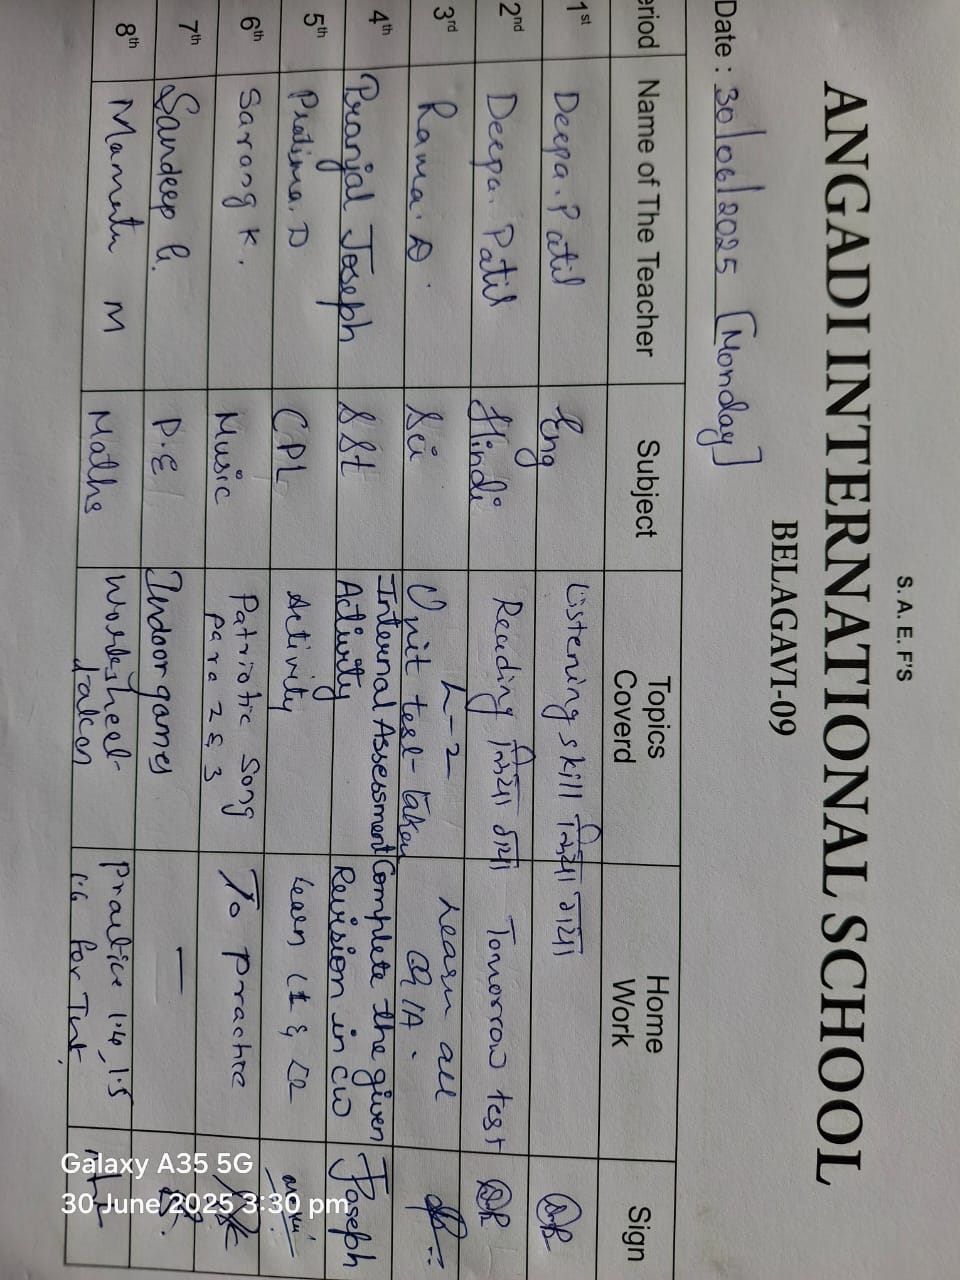 S. A. E. F'S
ANGADI INTERNATIONAL SCHOOL
BELAGAVI-09
Date : 30/06/2025 [Monday]
eriod Name of The Teacher Subject Topics Coverd Home Work Sign
1st Deepa. Patil Eng Listening skill लिया गया
2nd Deepa. Patil Hindi Reading लिया गया Tomorrow test
3rd Rama. D. Sci L-2 Unit test taken Learn all Q/A.
4th Pranjal Joseph SSt Internal Assessment Activity Complete the given Revision in CW Joseph
5th Pratima. D CPL Activity Learn L1 & L2
6th Sarang K. Music Patriotic Song para 2 & 3 To practice
7th Sandeep G. P.E Indoor games —
8th Mamata M Maths Worksheet taken Practice 1.4, 1.5 1.6 for Test.
Galaxy A35 5G
30 June 2025 3:30 pm